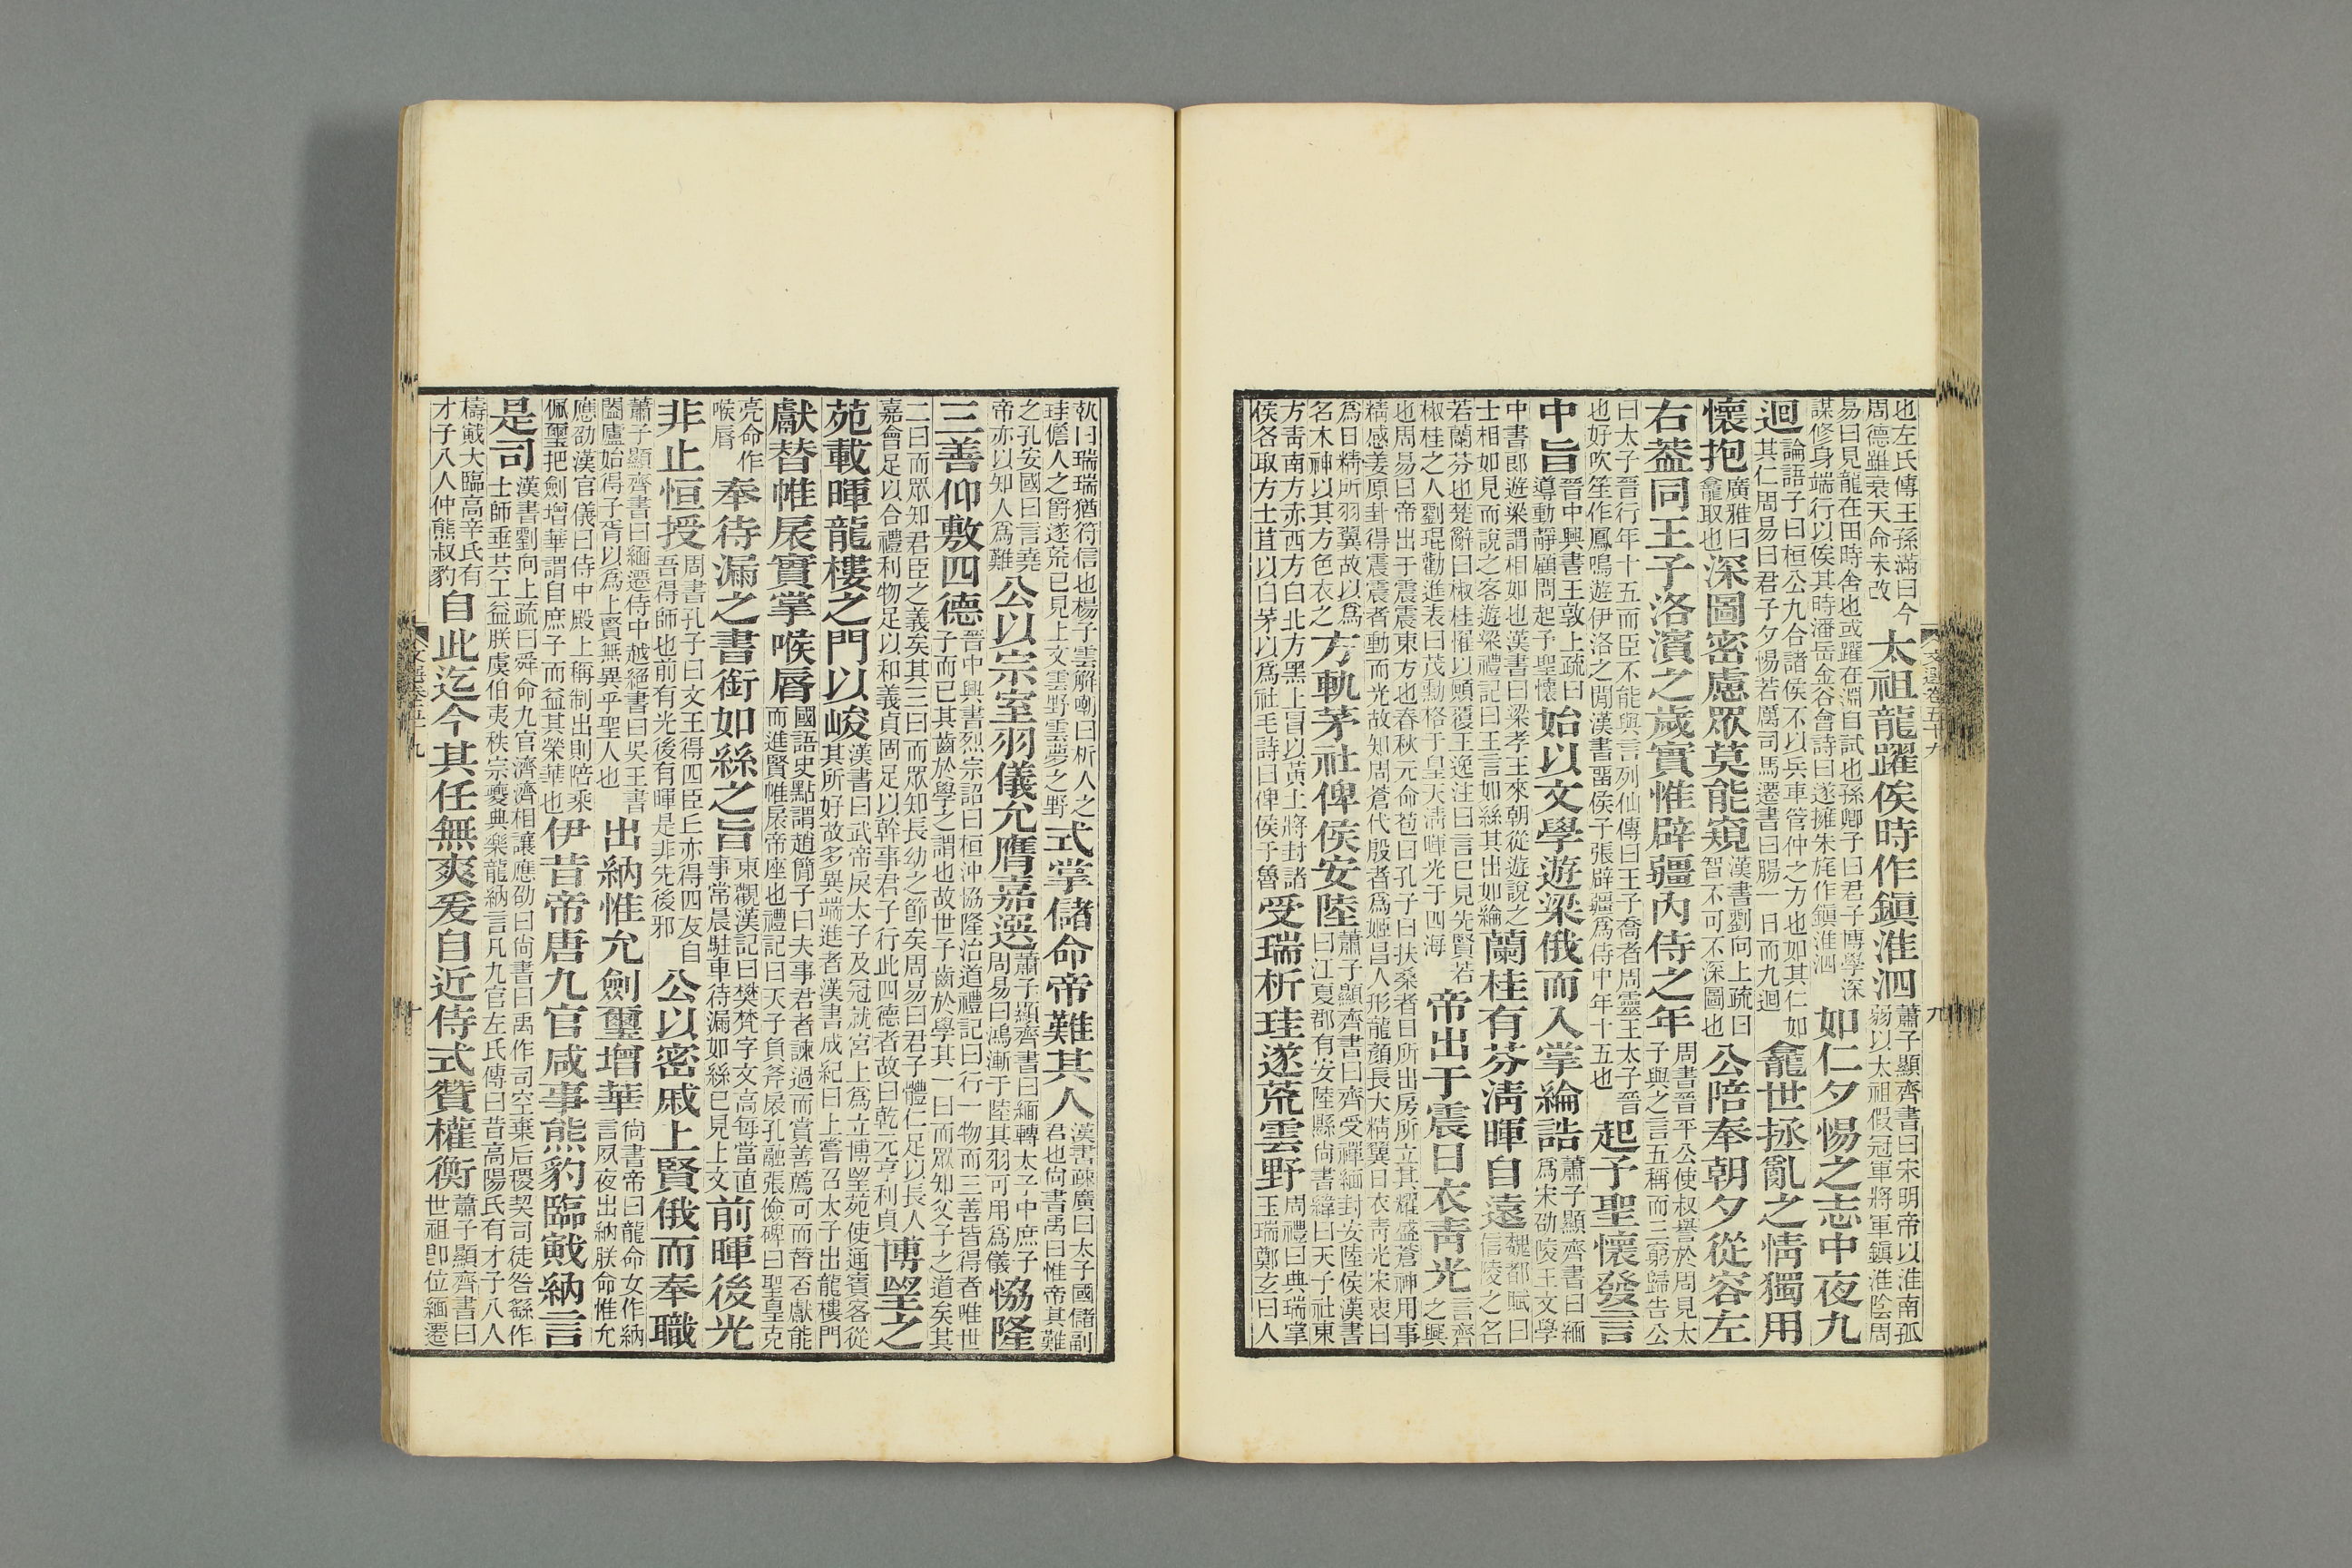 也左氏傳王孫滿曰今周德雖衰天命未改太祖龍躍俟時作鎭淮泗蕭子顯齊書曰宋明帝以淮南孤弱以太祖假冠軍將軍鎭淮陰周
易曰見龍在田時舍也或躍在淵自試也孫卿子曰君子博學深謀修身端行以俟其時潘岳金谷會詩曰遂擁朱旄作鎭淮泗如仁夕惕之志中夜九
迴論語子曰桓公九合諸侯不以兵車管仲之力也如其仁如其仁周易曰君子夕惕若厲司馬遷書曰腸一日而九迴龕世拯亂之情獨用
懷抱廣雅曰龕取也深圖密慮眾莫能窺漢書劉向上疏曰智不可不深圖也公陪奉朝夕從容左
右葢同王子洛濱之歲實惟辟疆內侍之年周書晉平公使叔譽於周見太子與之言五稱而三窮歸告公
曰太子晉行年十五而臣不能與言列仙傳曰王子喬者周靈王太子晉也好吹笙作鳳鳴遊伊洛之閒漢書畱侯子張辟疆爲侍中年十五也起予聖懷發言
中旨晉中興書王敦上疏曰導動靜顧問起予聖懷始以文學遊梁俄而入掌綸誥蕭子顯齊書曰緬爲宋劭陵王文學
中書郎遊梁謂相如也漢書曰梁孝王來朝從遊說之士相如見而說之客遊梁禮記曰王言如絲其出如綸蘭桂有芬淸暉自遠魏都賦曰信陵之名
若蘭芬也楚辭曰椒桂懼以顚覆王逸注曰言已見先賢若椒桂之人劉琨勸進表曰茂勳格于皇天淸暉光于四海帝出于震日衣靑光言齊之興
也周易曰帝出于震震東方也春秋元命苞曰孔子曰扶桑者日所出房所立其耀盛蒼神用事精感姜原卦得震震者動而光故知周蒼代殷者爲姬昌人形龍顏長大精翼日衣靑光宋衷曰
爲日精所羽翼故以爲名木神以其方色衣之方軌茅社俾侯安陸蕭子顯齊書曰齊受禪緬封安陸侯漢書曰江夏郡有安陸縣尙書緯曰天子社東
方靑南方赤西方白北方黑上冒以黃土將封諸侯各取方土苴以白茅以爲社毛詩曰俾侯于魯受瑞析珪遂荒雲野周禮曰典瑞掌玉瑞鄭玄曰人
執曰瑞瑞猶符信也楊子雲解嘲曰析人之珪儋人之爵遂荒已見上文雲野雲夢之野式掌儲命帝難其人漢書疎廣曰太子國儲副君也尙書禹曰惟帝其難
之孔安國曰言堯帝亦以知人爲難公以宗室羽儀允膺嘉選蕭子顯齊書曰緬轉太子中庶子周易曰鴻漸于陸其羽可用爲儀恊隆
三善仰敷四德晉中興書烈宗詔曰桓沖協隆治道禮記曰行一物而三善皆得者唯世子而已其齒於學之謂也故世子齒於學其一曰而眾知父子之道矣其
二曰而眾知君臣之義矣其三曰而眾知長幼之節矣周易曰君子體仁足以長人嘉會足以合禮利物足以和義貞固足以幹事君子行此四德者故曰乾元亨利貞博望之
苑載暉龍樓之門以峻漢書曰武帝戾太子及冠就宮上爲立博望苑使通賓客從其所好故多異端進者漢書成紀曰上嘗召太子出龍樓門
獻替帷扆實掌喉脣國語史黯謂趙簡子曰夫事君者諫過而賞善薦可而替否獻能而進賢帷扆帝座也禮記曰天子負斧扆孔融張儉碑曰聖皇克
亮命作喉脣奉待漏之書銜如絲之旨東觀漢記曰樊梵字文高每當直事常晨駐車待漏如絲已見上文前暉後光
非止恒授周書孔子曰文王得四臣丘亦得四友自吾得師也前有光後有暉是非先後邪公以密戚上賢俄而奉職
蕭子顯齊書曰緬遷侍中越絕書曰吳王書闔廬始得子胥以爲上賢無異乎聖人也出納惟允劍璽增華尙書帝曰龍命女作納言夙夜出納朕命惟允
應劭漢官儀曰侍中殿上稱制出則陪乘佩璽把劍增華謂自庶子而益其榮華也伊昔帝唐九官咸事熊豹臨戭納言
是司漢書劉向上疏曰舜命九官濟濟相讓應劭曰尙書曰禹作司空棄后稷契司徒咎繇作士師垂共工益朕虞伯夷秩宗夔典樂龍納言凡九官左氏傳曰昔高陽氏有才子八人
檮戭大臨高辛氏有才子八人仲熊叔豹自此迄今其任無爽爰自近侍式贊權衡蕭子顯齊書曰世祖卽位緬遷